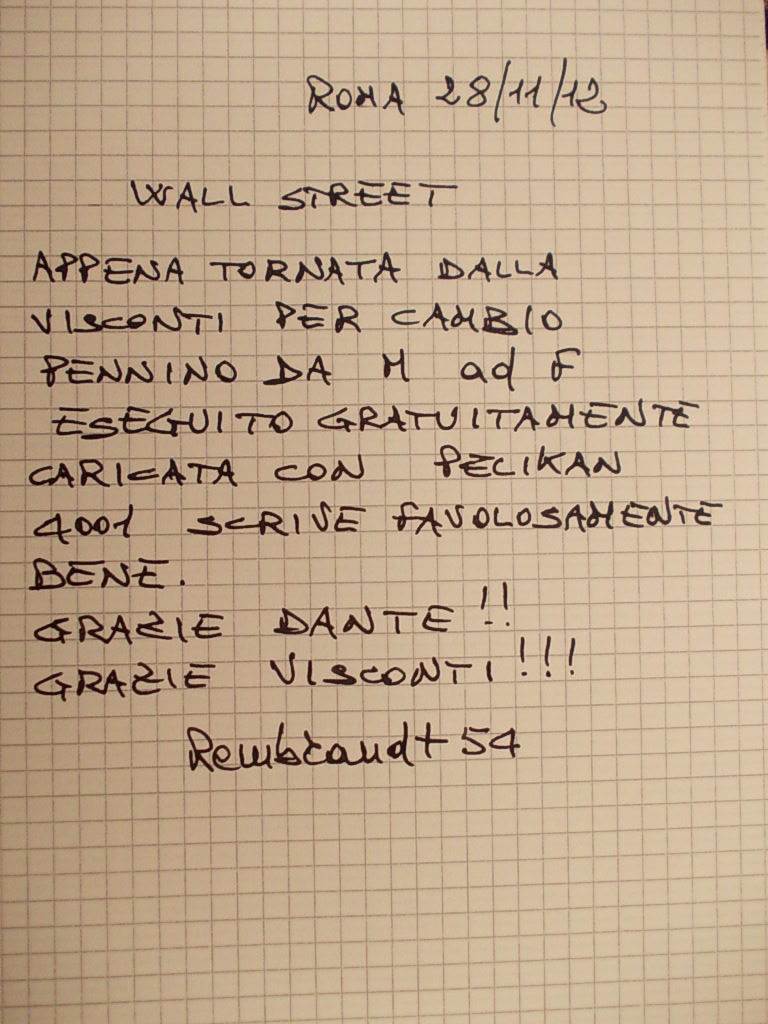 ROMA 28/11/12
WALL STREET
APPENA TORNATA DALLA
VISCONTI PER CAMBIO
PENNINO DA M ad F
ESEGUITO GRATUITAMENTE
CARICATA CON PELIKAN
4001 SCRIVE FAVOLOSAMENTE
BENE.
GRAZIE DANTE !!
GRAZIE VISCONTI !!!
Rembrandt 54